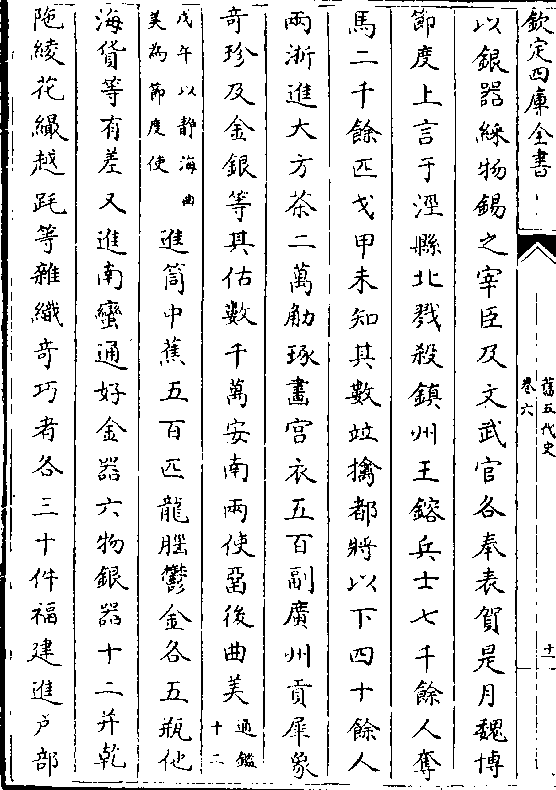 欽定四庫全書
舊五代史
卷六
十一
以銀器綵物錫之宰臣及文武官各奉表賀是月魏博
節度上言于涇縣北戮殺鎮州王鎔兵士七千餘人奪
馬二千餘匹戈甲未知其數竝擒都將以下四十餘人
兩浙進大方茶二萬觔琢畫宫衣五百副廣州貢犀象
奇珍及金銀等其估數千萬安南兩使留後曲美通鑑十二
戊午以静海曲美為節度使進筒中蕉五百匹龍腦鬱金各五瓶他
海貨等有差又進南蠻通好金器六物銀器十二并乾
陁綾花纈越㲝等雜織奇巧者各三十件福建進户部